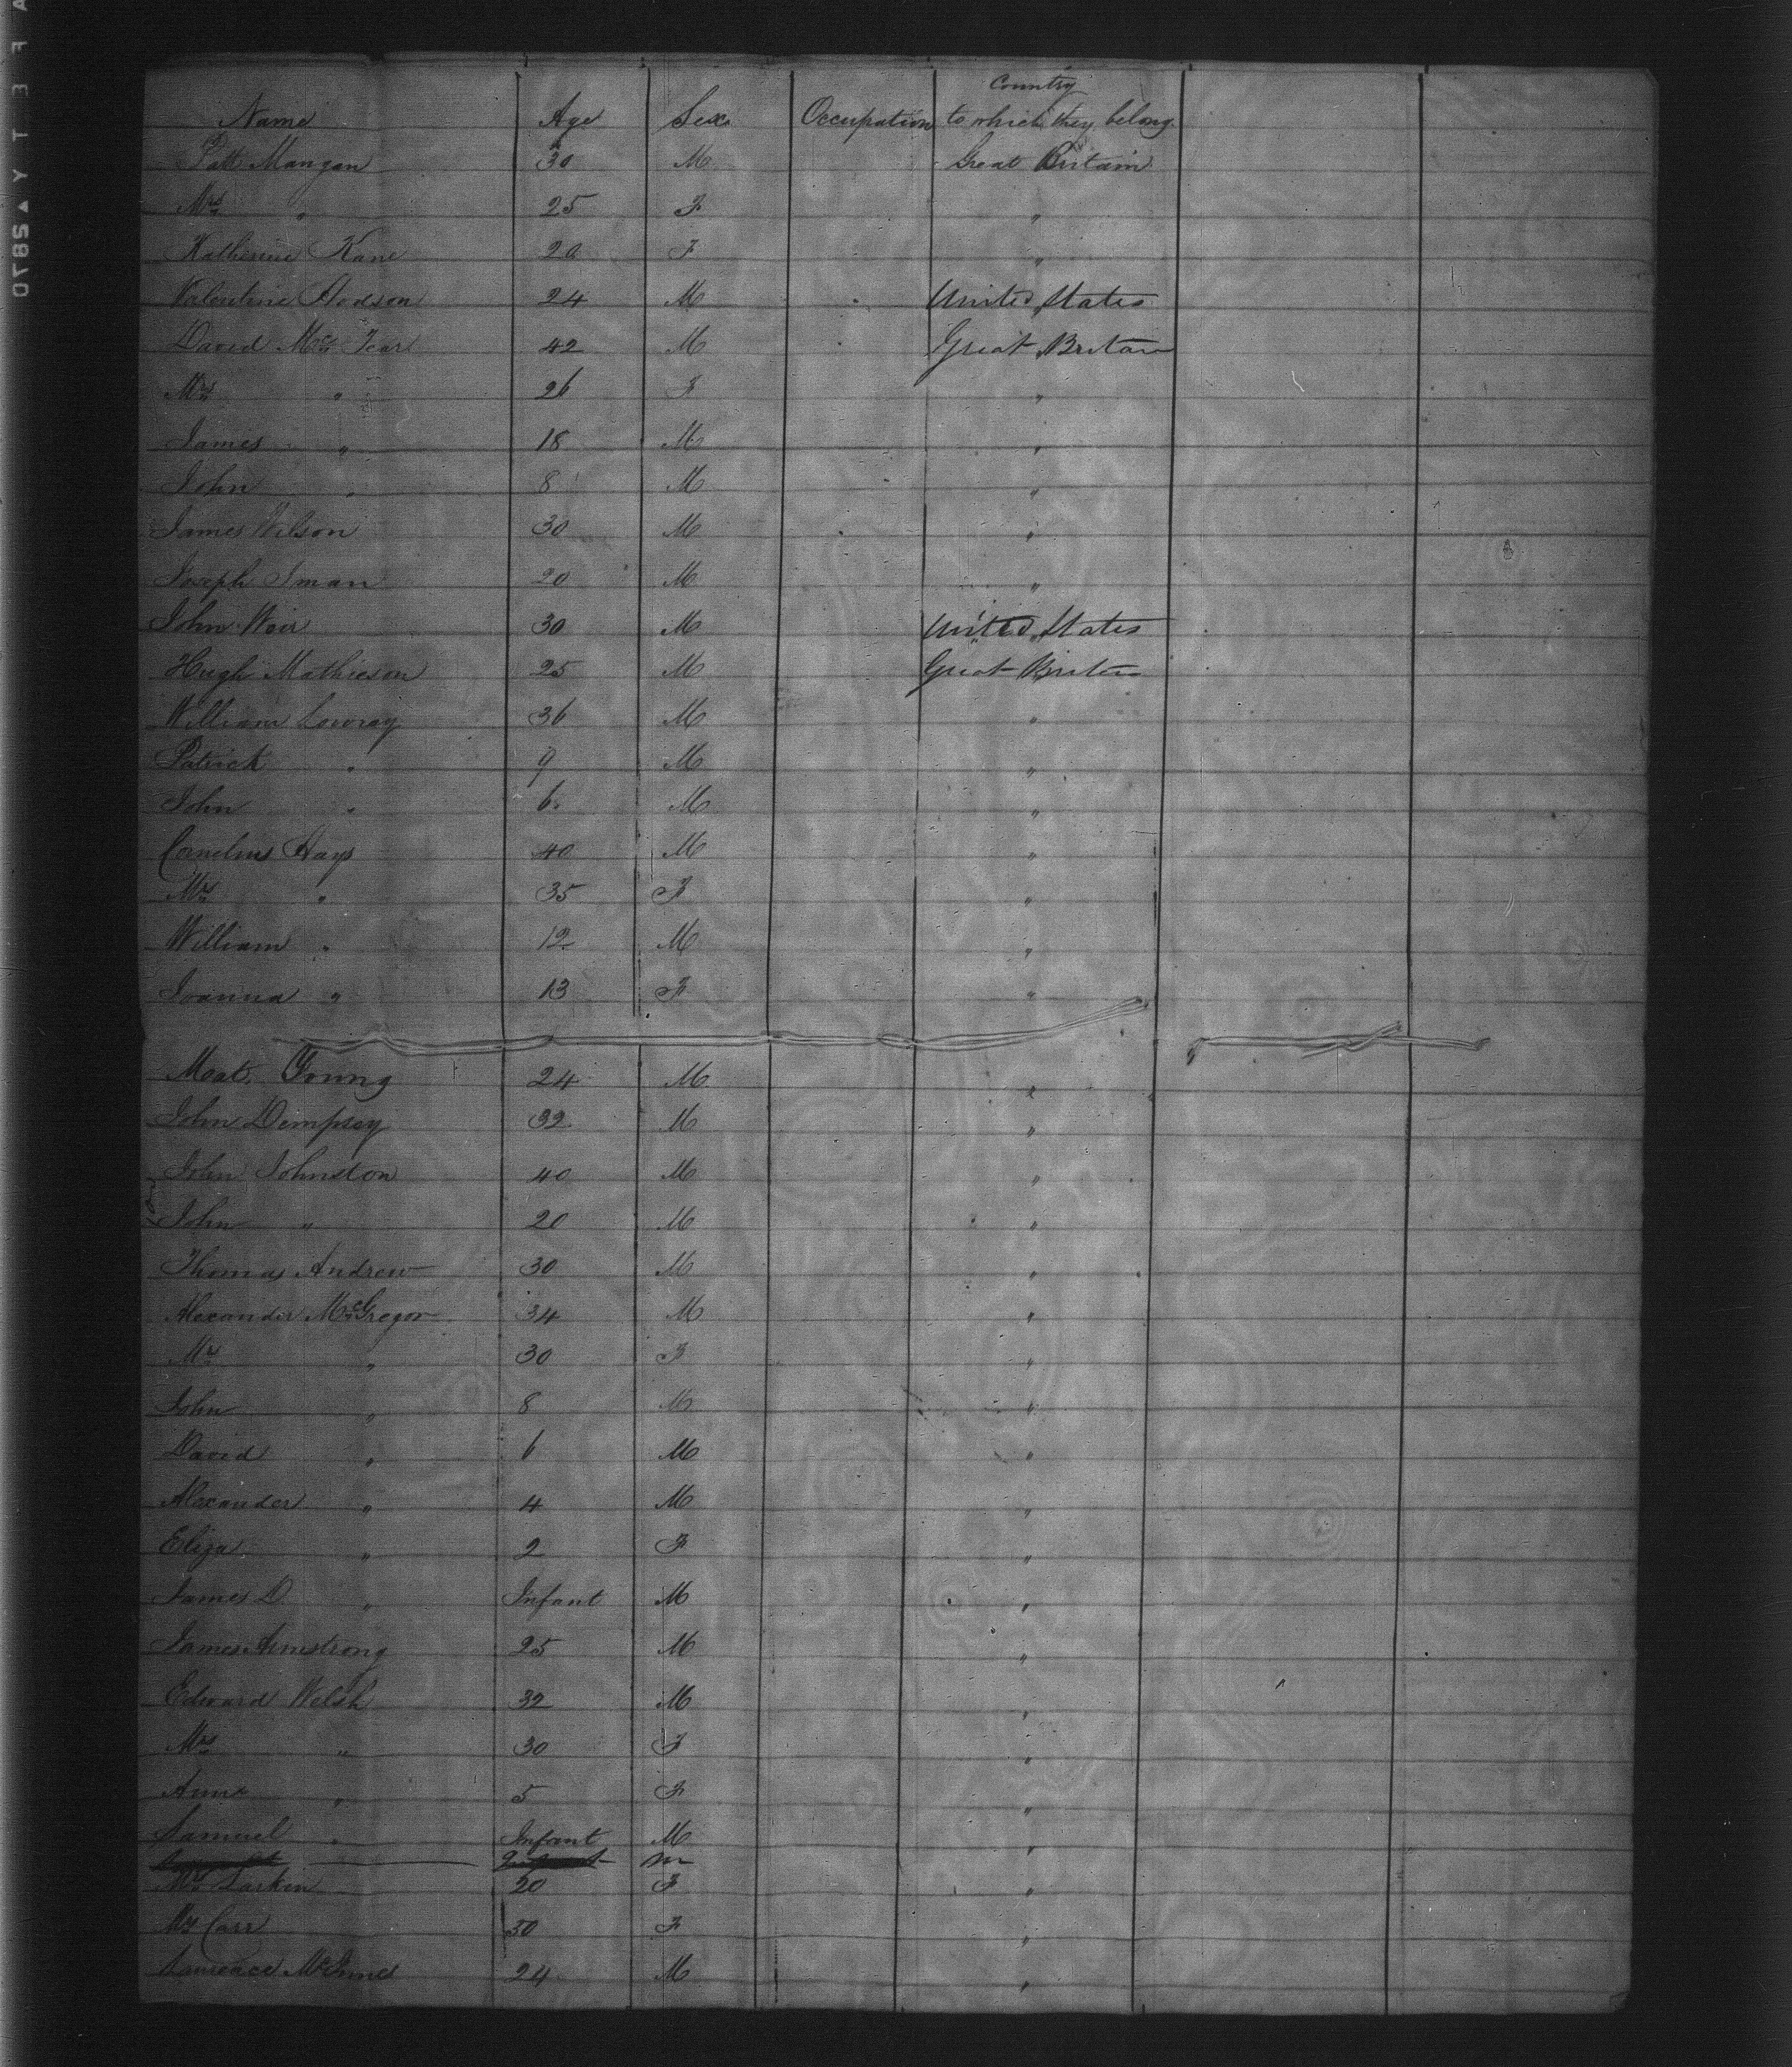 Country
Name Age Sex Occupation to which they belong
Patt Mangan 30 M Great Britain
Mrs " 25 F "
Katherine Kane 20 F "
Valentine Hodson 24 M United States
David Mc 42 M Great Britain
Mrs " 26 F "
James " 18 M "
John " 8 M "
James Wilson 30 M "
Joseph 20 M "
John Weir 30 M United States
Hugh Mathieson 25 M Great Britain
William Lowray 36 M "
Patrick " 9 M "
John " 6 M "
Cornelius Hays 40 M "
Mrs " 35 F "
William " 12 M "
Joanna " 13 F "
Mat. Young 24 M "
John Dempsey 32 M "
John Johnston 40 M "
John " 20 M "
Thomas Andrew 30 M "
Alexander McGregor 34 M "
Mrs " 30 F "
John " 8 M "
David " 6 M "
Alexander " 4 M "
Eliza " 2 F "
James D " Infant M "
James Armstrong 25 M "
Edward Welsh 32 M "
Mrs " 30 F "
Anne " 5 F "
Samuel " Infant M "
Infant m
Mrs Larkin 20 F "
Mrs Carr 30 F "
Laurence 24 M "